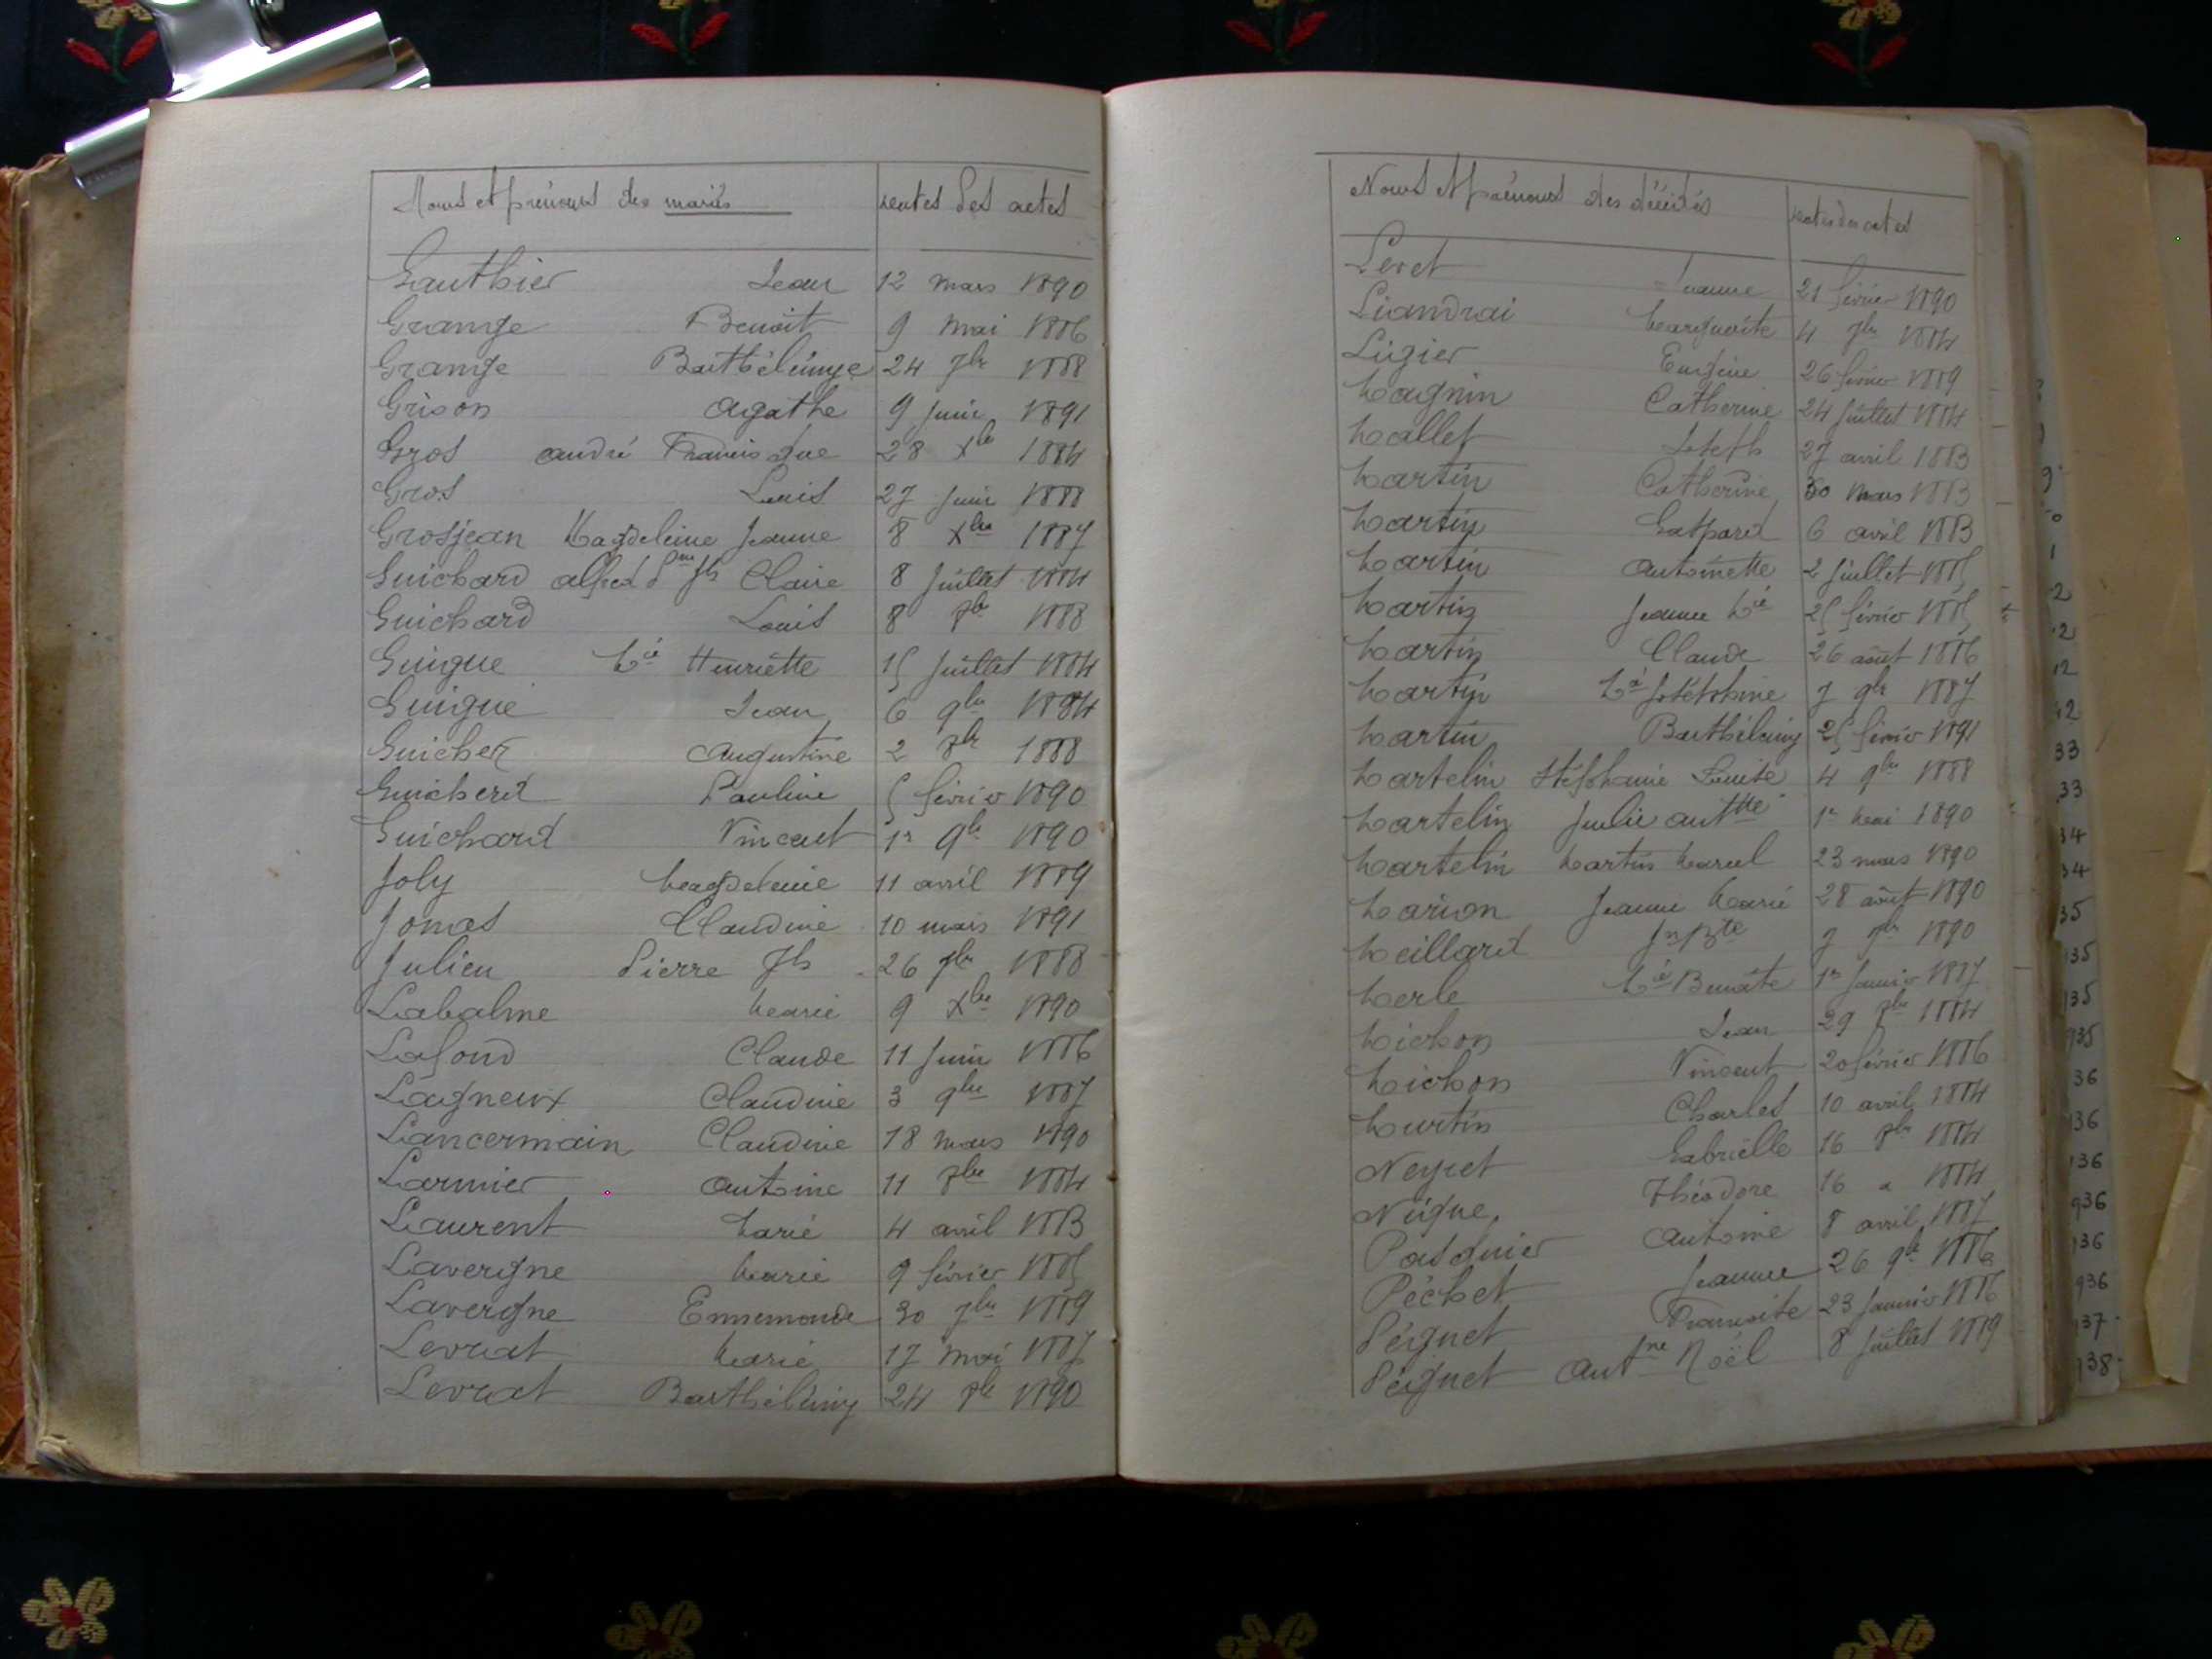 Noms et prénoms des mariés dates des actes
Gauthier Jean 12 mars 1890
Grange Benoit 9 mai 1886
Grange Barthélémye 24 7bre 1888
Grison Agathe 9 Juin 1891
Gros André Francisque 28 Xbre 1884
Gros Louis 27 Juin 1888
Grosjean Magdeleine Jeanne 8 Xbre 1887
Guichard Alfred Jh Claire 8 Juillet 1884
Guichard Louis 8 8bre 1883
Guigue Mie Henriette 15 Juillet 1884
Guigue Jean 6 9bre 1884
Guicher Augustine 2 8bre 1888
Guicherd Pauline 5 février 1890
Guichard Vincent 1er 9bre 1890
Joly Magdeleine 11 avril 1889
Jomas Claudine 10 mars 1891
Julien Pierre Jh 26 7bre 1888
Labalme Marie 9 Xbre 1890
Lafond Claude 11 Juin 1886
Lagneux Claudine 3 9bre 1887
Lancermain Claudine 18 mars 1890
Larmier Antoine 11 8bre 1884
Laurent Marie 4 avril 1883
Lavergne Marie 9 février 1885
Lavergne Ennemonde 30 7bre 1889
Levrat Marie 17 mai 1887
Levrat Barthélémy 24 8bre 1890
Noms et prénoms des décédés dates des actes
Leret Jeanne 21 février 1890
Liandrai Marguerite 4 7bre 1884
Lugier Eugène 26 février 1889
Magnin Catherine 24 Juillet 1884
Mallet Joseph 27 avril 1883
Martin Catherine 30 mars 1883
Martin Gaspard 6 avril 1883
Martin Antoinette 2 Juillet 1885
Martin Jeanne Mie 25 février 1885
Martin Claude 26 août 1886
Martin Mie Joséphine 7 9bre 1887
Martin Barthélémy 25 février 1891
Martelin Stéphanie Louise 4 9bre 1888
Martelin Julie Anttte 1er Mai 1890
Martelin Martin Marcel 23 mars 1890
Marion Jeanne Marie 28 août 1890
Meillard Jn Bte 7 7bre 1890
Merle Mie Benoite 1er Janvier 1887
Michon Jean 29 8bre 1884
Michon Vincent 20 février 1886
Murtin Charles 10 avril 1884
Neyret Gabrielle 16 8bre 1884
Nugue Théodore 16 " 1884
Pasquier Antoine 8 avril 1887
Péchet Jeanne 26 9bre 1886
Péguet Françoise 23 Janvier 1886
Péguet Antne Noël 8 Juillet 1889